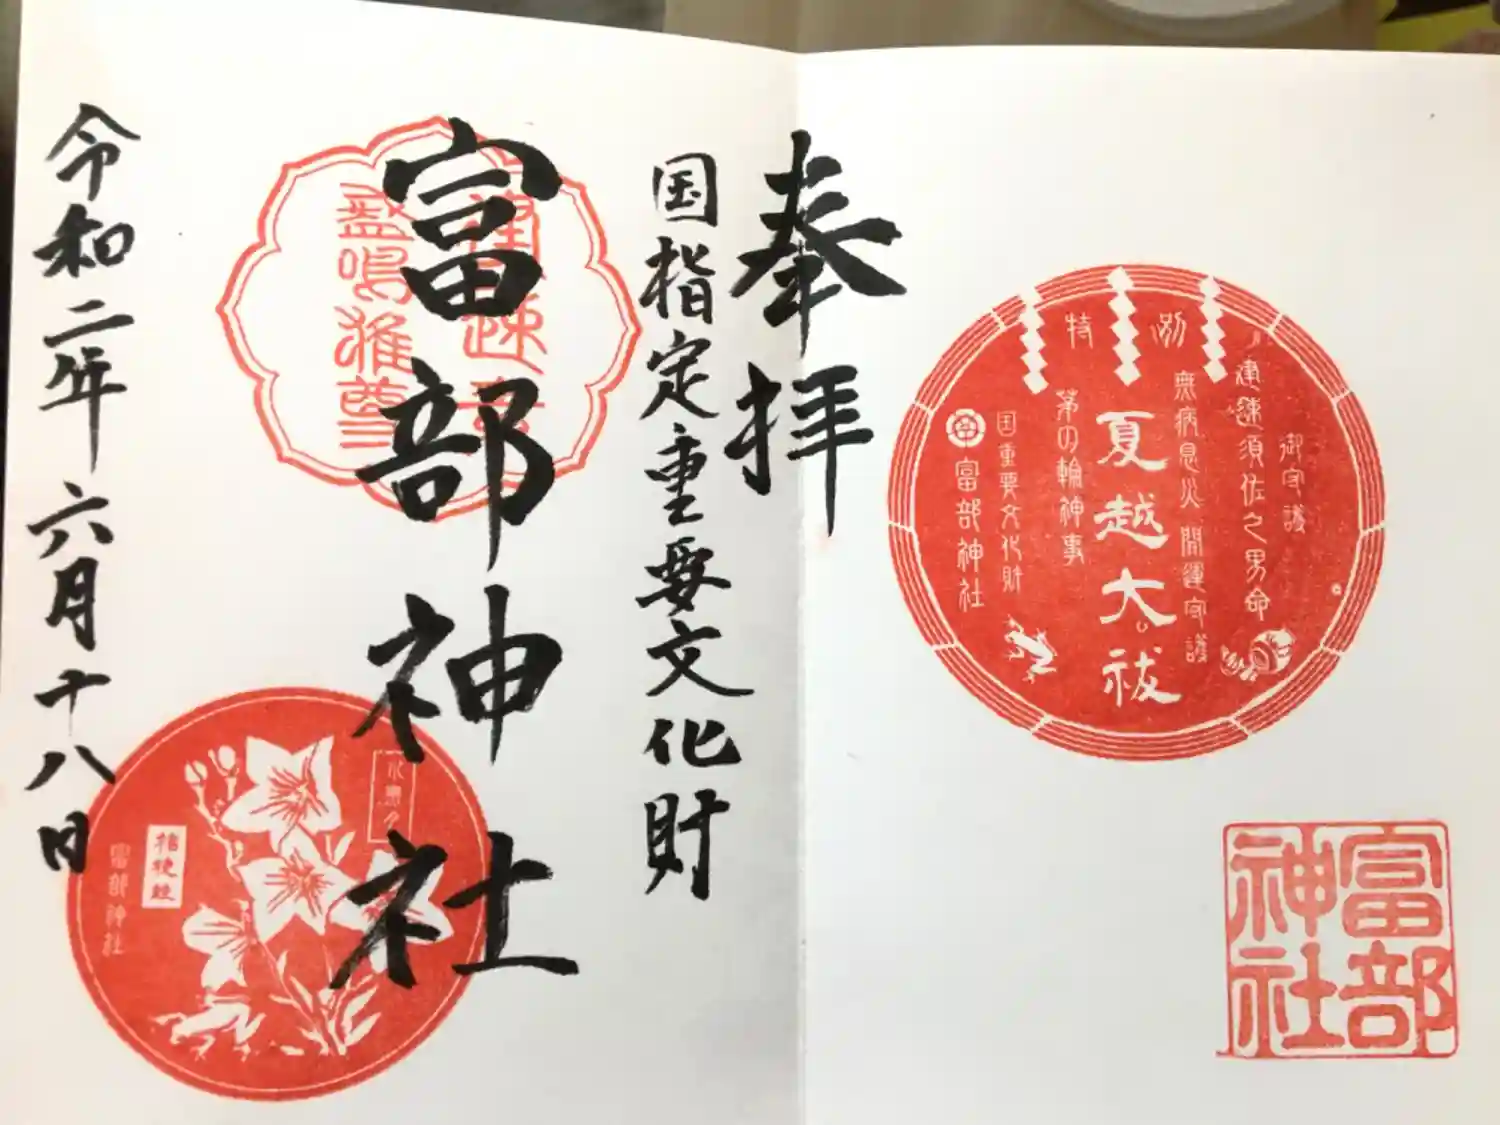 特別
御守護
建速須佐之男命
無病息災 開運守護
夏越大祓
茅の輪神事
国重要文化財
富部神社
富部
神社
奉拝
国指定重要文化財
富部神社
建速素
盞嗚雅尊
令和二年六月十八日
水無月
桔梗
富部神社